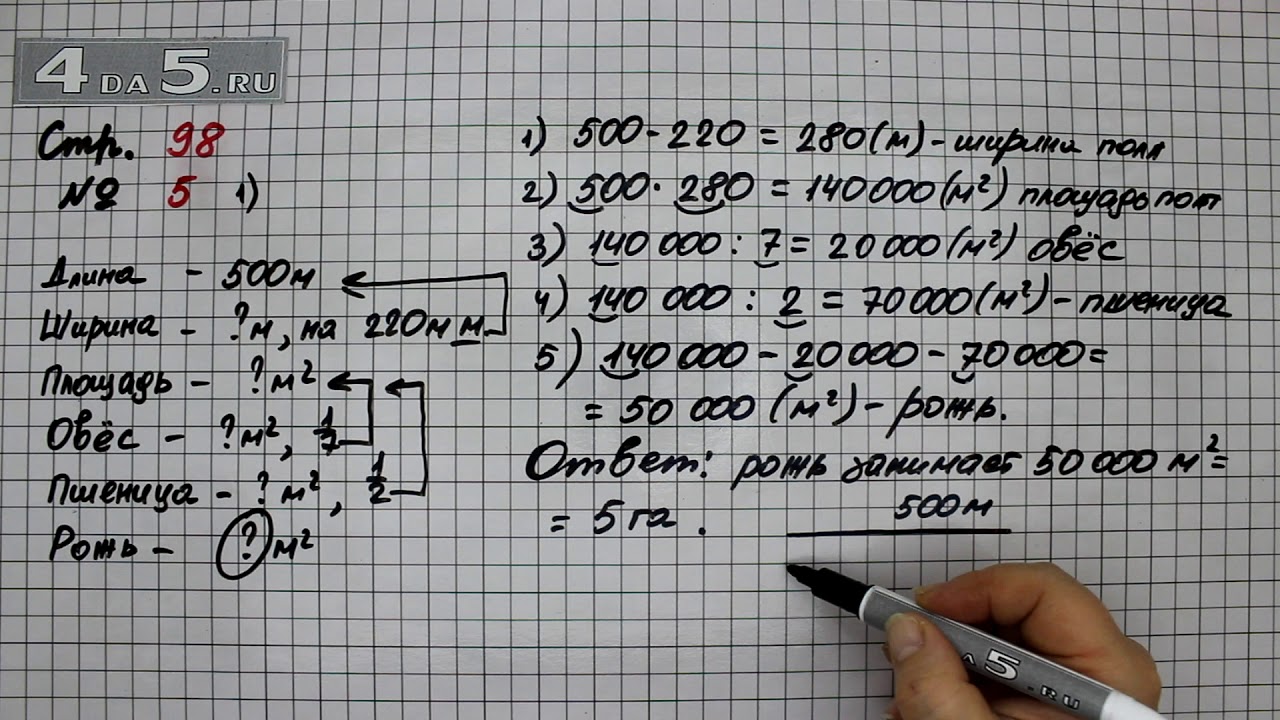 4DA5.RU
Стр. 98
№ 5 1)
Длина - 500м
Ширина - ?м, на 220м м
Площадь - ?м²
Овёс - ?м², 1/7
Пшеница - ?м², 1/2
Рожь - ?м²
1) 500-220 = 280(м) - ширина поля
2) 500·280 = 140000(м²) площадь
3) 140 000 : 7 = 20 000(м²) овёс
4) 140 000 : 2 = 70 000(м²) - пшеница
5) 140 000 - 20 000 - 70 000 =
= 50 000 (м²) - рожь.
Ответ: рожь занимает 50 000 м² =
= 5 га.
500м
5.RU